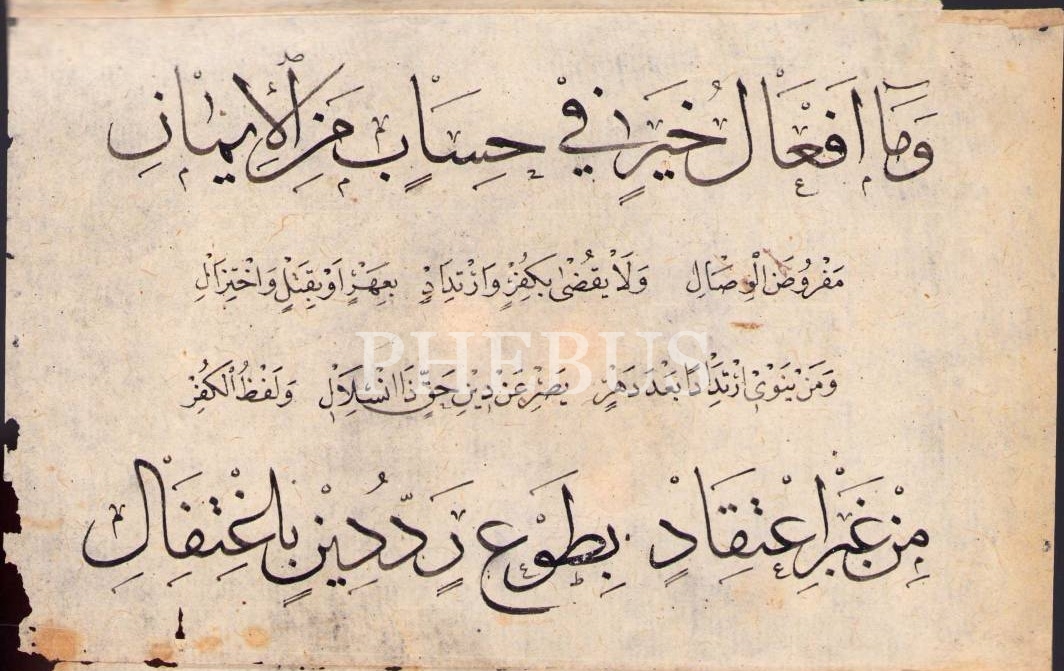 وَمَآ اَفْعَالُ خَيْرٍ فِيْ حِسَابٍ مِنَ الْاِيْمَانِ
مَفْرُوْضَ الْوِصَالِ وَلَا يُقْضٰى بِكُفْرٍ وَارْتِدَادٍ بِعَهْرٍ اَوْ بِقَتْلٍ وَاخْتِزَالٍ
وَمَنْ يَنْوِيْ ارْتِدَادًا بَعْدَ دَهْرٍ يَصِرْ عَنْ دِيْنِ حَقٍّ ذَا انْسِلَالٍ وَلَفْظُ الْكُفْرِ
مِنْ غَيْرِ اعْتِقَادٍ بِطَوْعٍ رَدُّ دِيْنٍ بِاغْتِفَالِ
PHEBUS